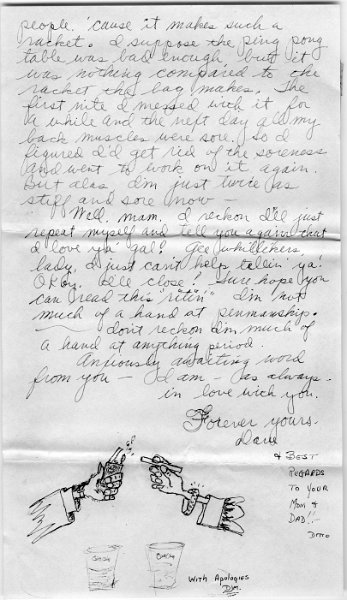 people, 'cause it makes such a
racket. I suppose the ping pong
table was bad enough but it
was nothing compared to the
racket the bag makes. The
first nite I messed with it for
a while and the next day all my
back muscles were sore. So I
figured I'd get rid of the soreness
and went to work on it again.
But alas, I'm just twice as
stiff and sore now.
Well, mam, I reckon I'll just
repeat myself and tell you again that
I love ya' gal! Gee whillikers,
lady, I just can't help tellin' ya!
Okay, I'll close! Sure hope you
can read this "ritin'" I'm not
much of a hand at penmanship.
don't reckon I'm much of
a hand at anything period.
Anxiously awaiting word
from you — I am — as always -
in love with you.
Forever yours,
Dave
& BEST
REGARDS
TO YOUR
MOM &
DAD!!
DITTO
With Apologies